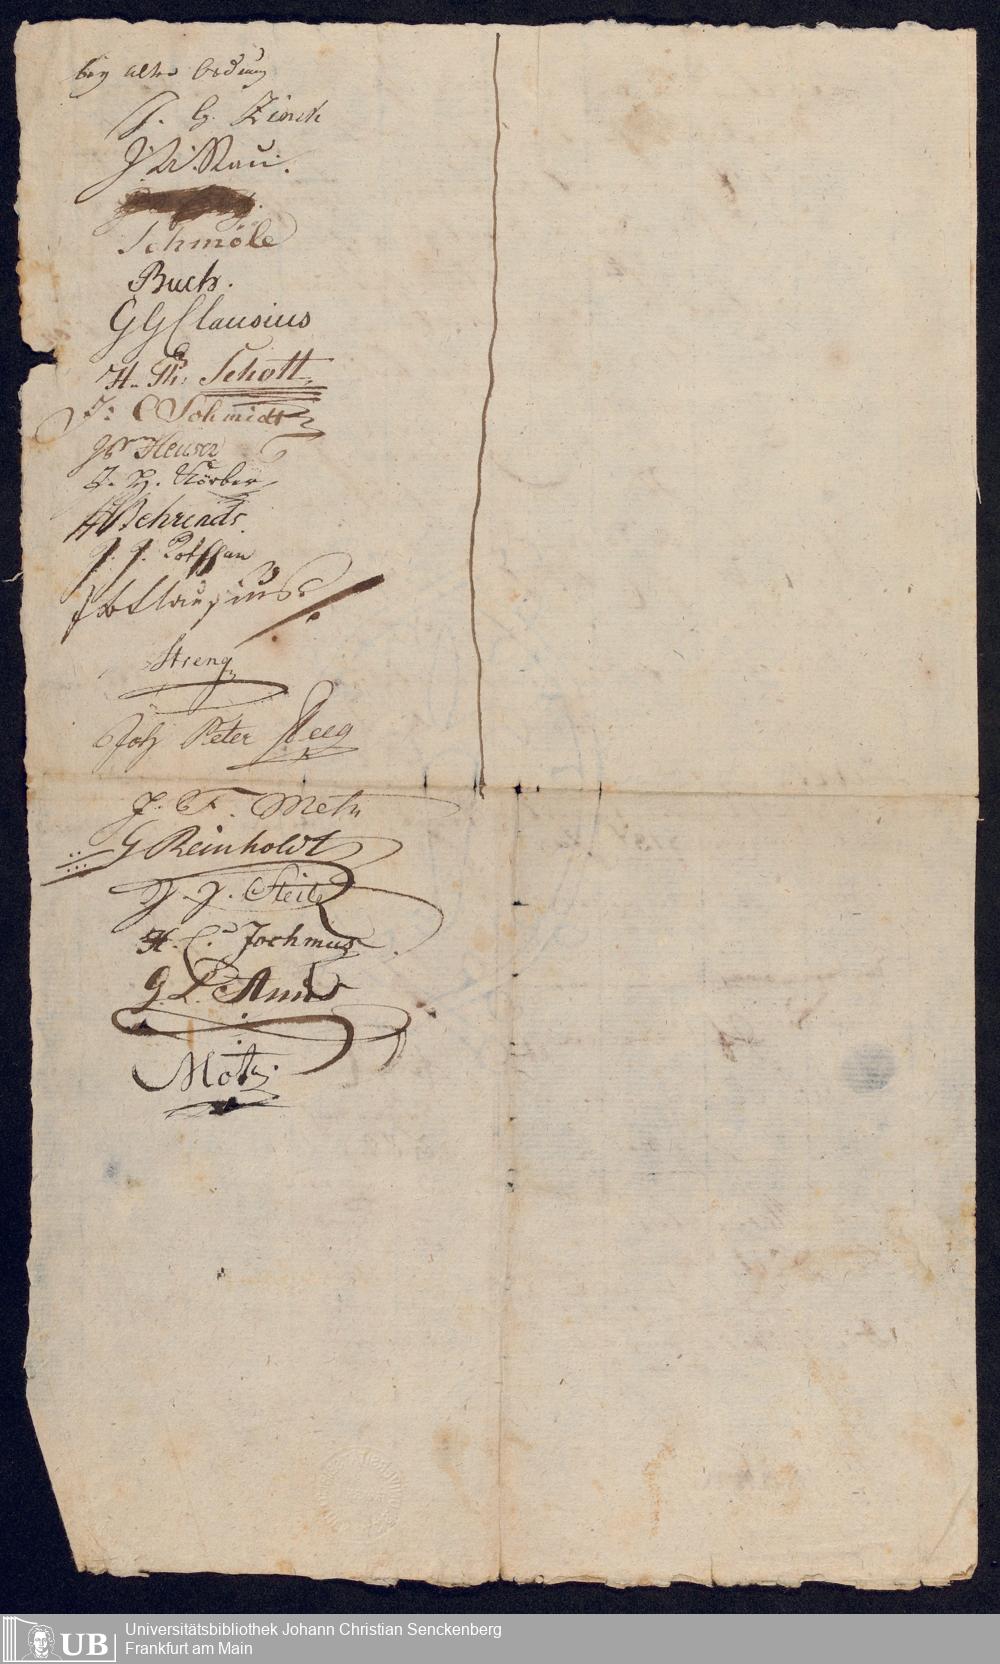 bey alter Ordnung
J. G. Zinck
J. W. Rau.
Schmöle
Buch.
G G Clausius
H. Th. Schott
J. C Schmidt
Heuser
J. H. Körber
Behrends
J. J.
Clausius
Streng
Joh Peter Steeg
J. F. Metz
G Reinholdt
J. J. Steitz
H. C. Jochmus
G. L.
Motz.
UB
Universitätsbibliothek Johann Christian Senckenberg
Frankfurt am Main